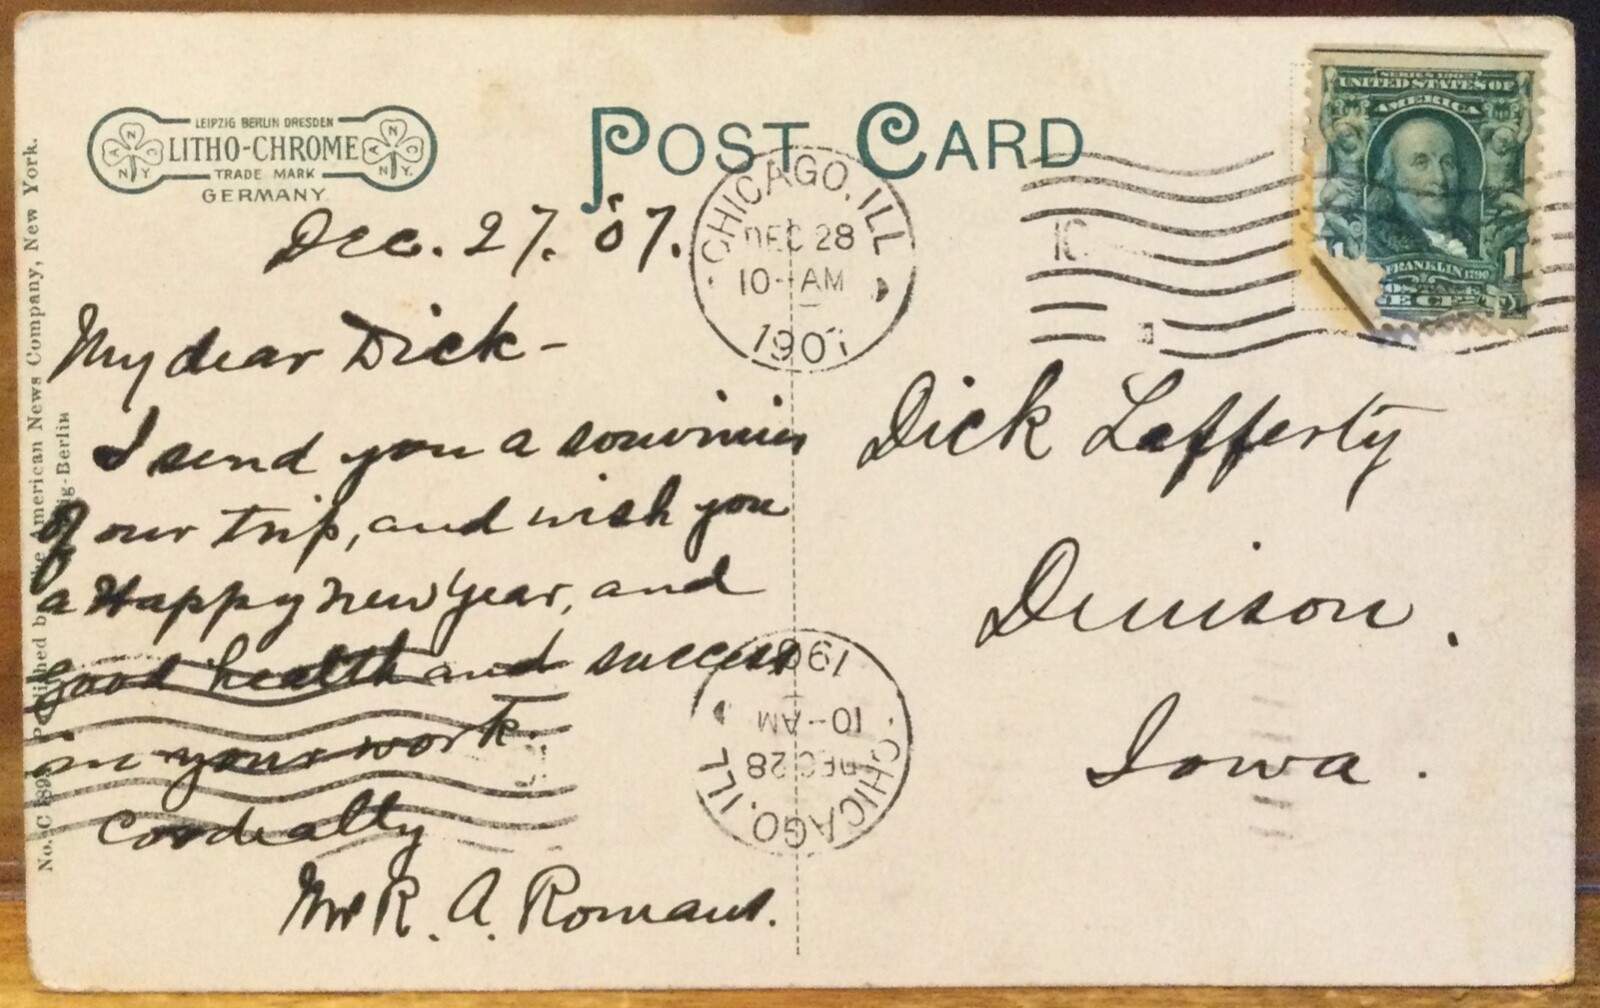 LEIPZIG BERLIN DRESDEN
LITHO-CHROME
TRADE MARK
GERMANY
A N C N Y.
A N C N Y.
POST CARD
SERIES 1902
UNITED STATES OF
AMERICA
FRANKLIN 1790
1
CHICAGO, ILL
DEC 28
10-AM
1907
10
Dec. 27. 07.
My dear Dick -
I send you a souvinier
of our trip, and wish you
a Happy New Year, and
good health and success
in your work.
Cordially
R. A. Romans.
Dick Lafferty
Denison.
Iowa.
CHICAGO, ILL
DEC 28
10-AM
190
Published by the American News Company, New York.
ig-Berlin